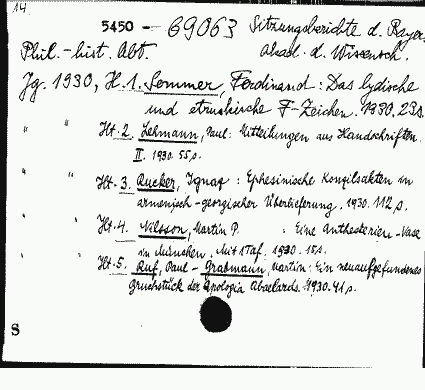 14
5450 - 69063 Sitzungsberichte d. Bayer.
Phil.-hist. Abt. Akad. d. Wissensch.
Jg. 1930, H. 1. Sommer, Ferdinand: Das lydische
und etruskische F-Zeichen. 1930. 23 s.
" " Hft. 2. Lehmann, Paul: Mitteilungen aus Handschriften.
II. 1930. 55 s.
" " Hft. 3. Rucker, Ignaz: Ephesinische Konzilsakten in
armenisch-georgischer Überlieferung. 1930. 112 s.
" " Hft. 4. Nilsson, Martin P. : Eine Anthesterien-Vase
in München. Mit 1 Taf. 1930. 15 s.
" " Hft. 5. Ruf, Paul - Grabmann, Martin: Ein neuaufgefundenes
Bruchstück der Apologia Abaelards. 1930. 41 s.
S